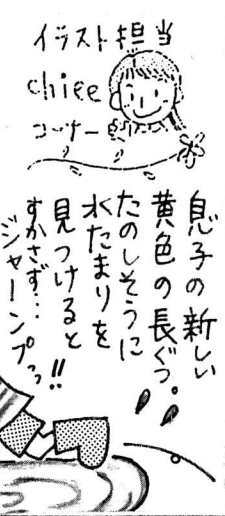 イラスト担当
chiee
コーナー
息子の新しい
黄色の長ぐつ。
たのしそうに
水たまりを
見つけると
すかさず…
ジャーンプっ!!